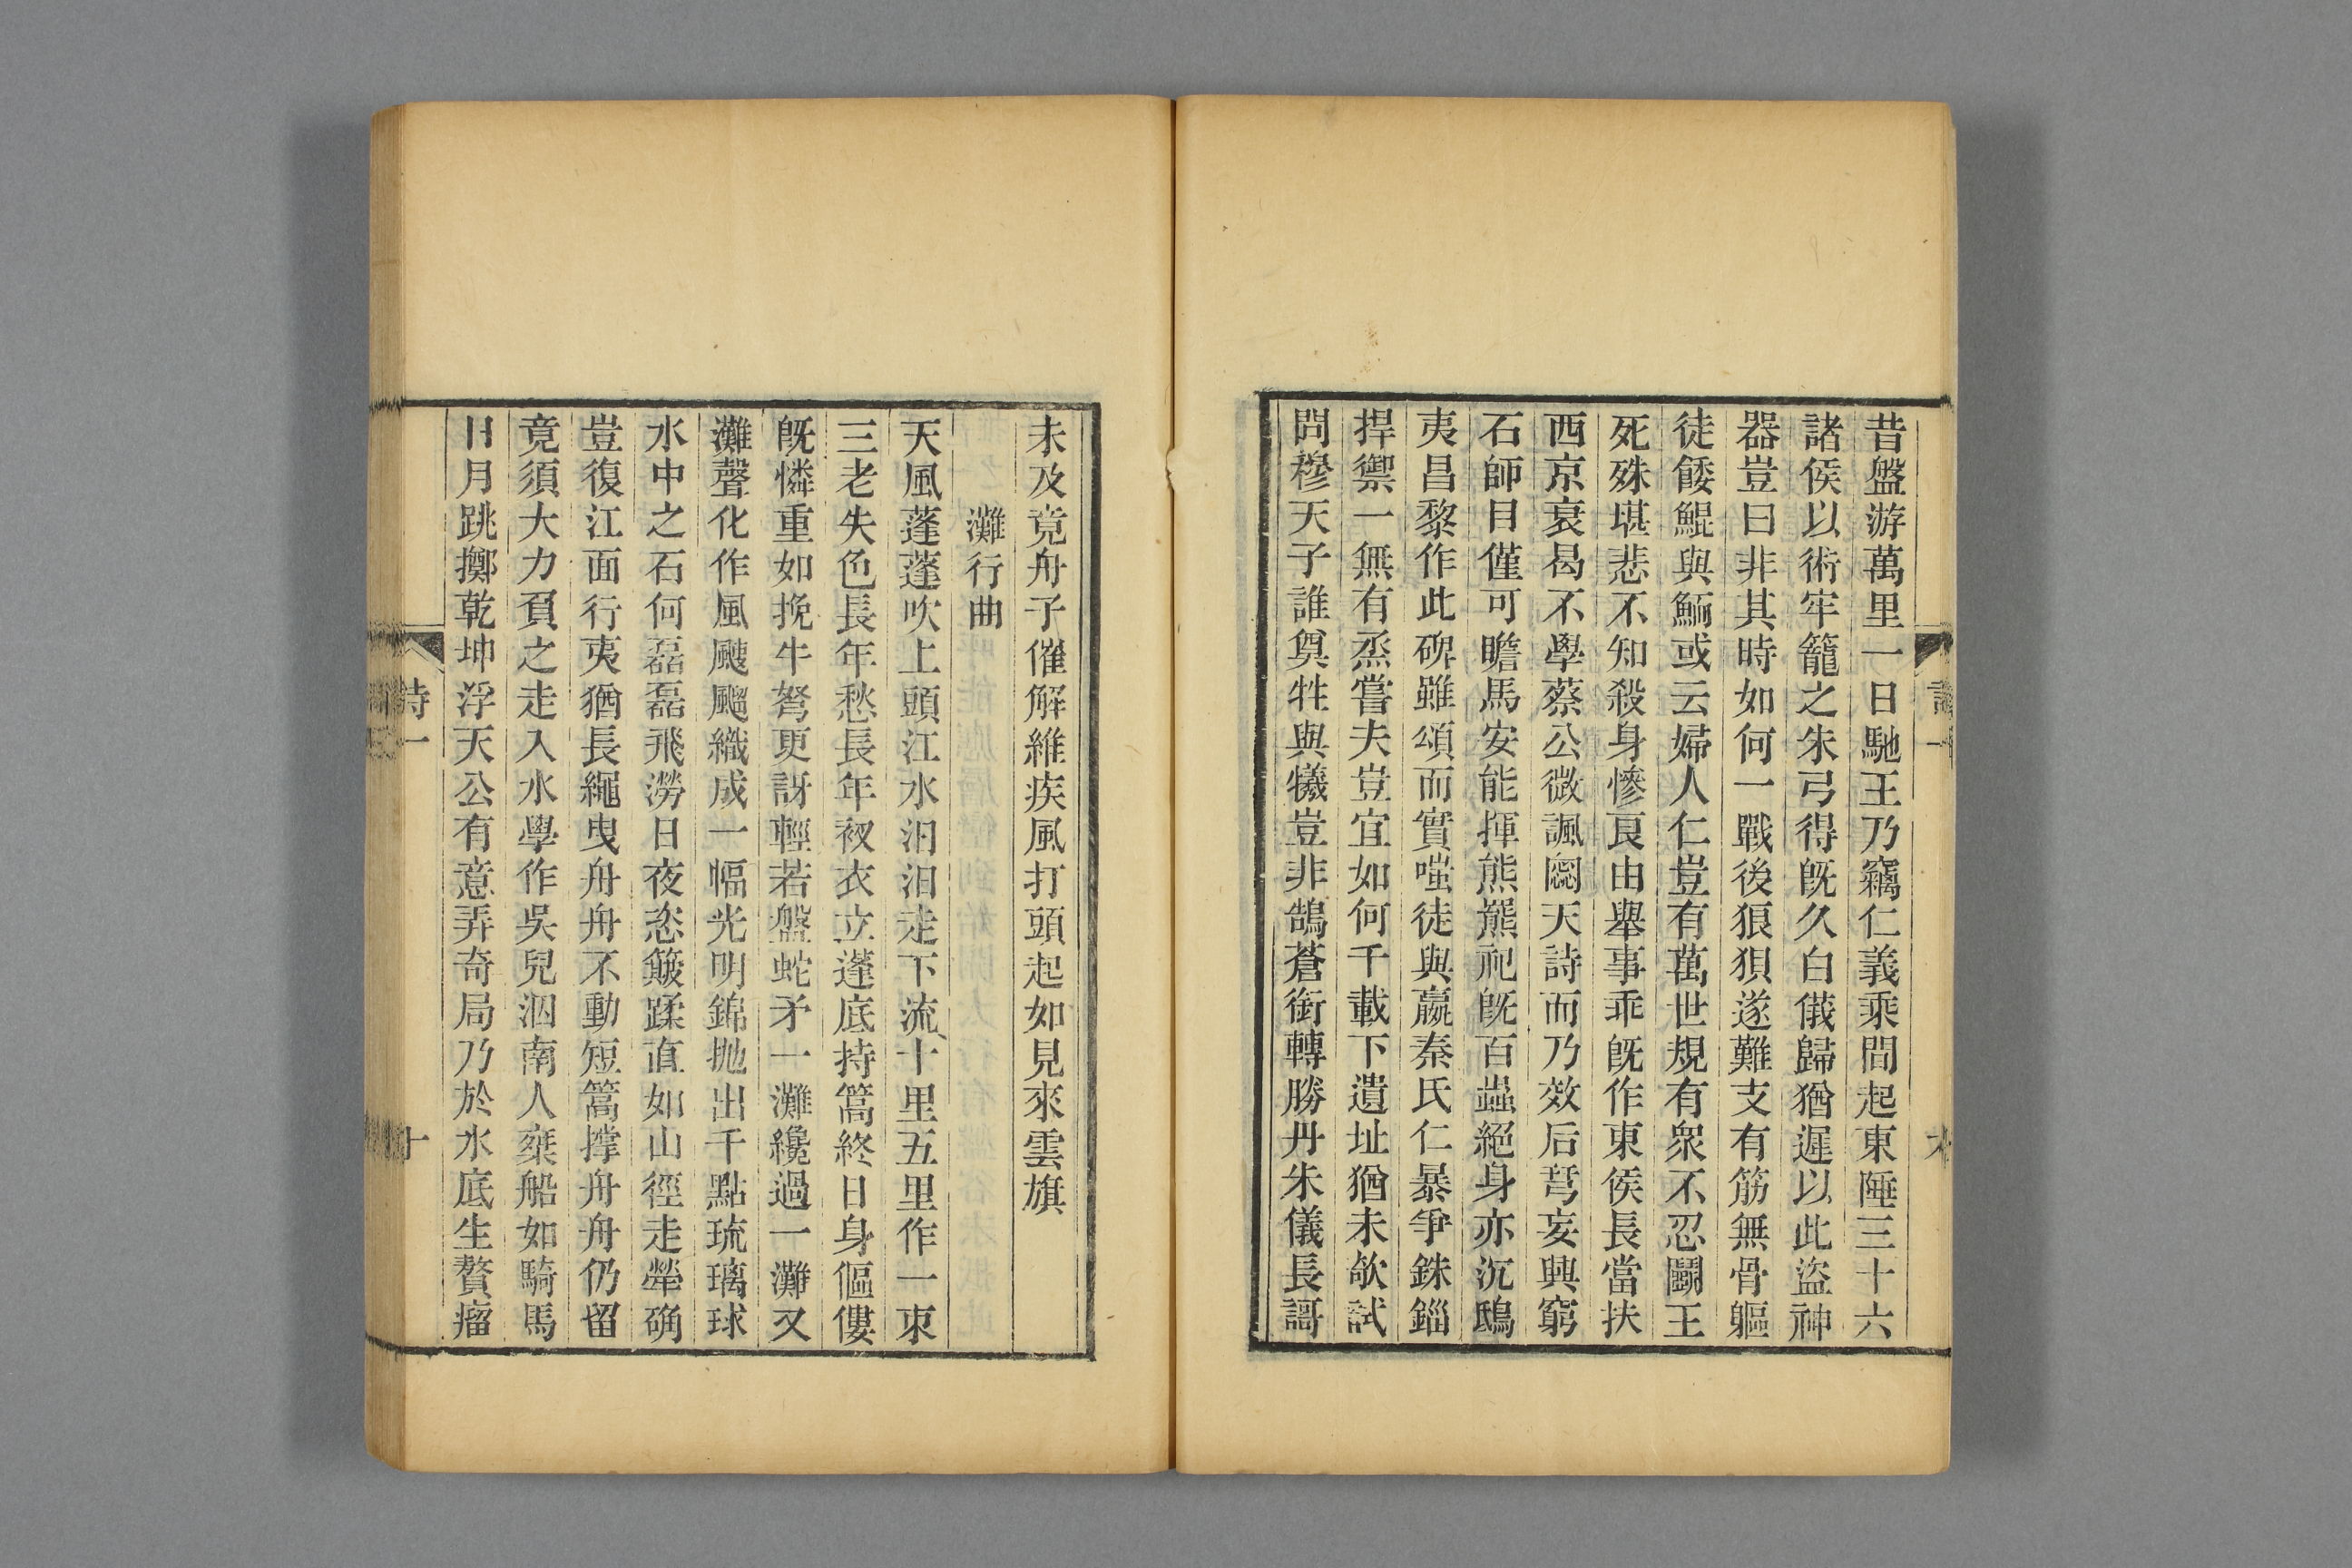 昔盤游萬里一日馳王乃竊仁義乘間起東陲三十六
諸侯以術牢籠之朱弓得旣久白儀歸猶遲以此盜神
器豈曰非其時如何一戰後狼狽遂難支有筋無骨軀
徒餧鯤與鮞或云婦人仁豈有萬世規有衆不忍鬬王
死殊堪悲不知殺身慘良由舉事乖旣作東侯長當扶
西京衰曷不學蔡公微諷閟天詩而乃效后羿妄興窮
石師目僅可瞻馬安能揮熊羆祀旣百蝱絕身亦沉鴟
夷昌黎作此碑雖頌而實嗤徒與嬴秦氏仁暴爭銖錙
捍禦一無有烝嘗夫豈宜如何千載下遺址猶未欹試
問穆天子誰奠牲與犧豈非鵠蒼銜轉勝丹朱儀長謌
未及竟舟子催解維疾風打頭起如見來雲旗
灘行曲
天風蓬蓬吹上頭江水汩汩走下流十里五里作一束
三老失色長年愁長年衩衣立蓬底持篙終日身傴僂
旣憐重如挽牛弩更訝輕若盤蛇矛一灘纔過一灘又
灘聲化作風颼飀織成一幅光明錦拋出千點琉璃球
水中之石何磊磊飛澇日夜恣簸蹂直如山徑走犖确
豈復江面行夷猶長繩曳舟舟不動短篙撑舟舟仍留
竟須大力負之走入水學作吳兒泅南人椉船如騎馬
日月跳擲乾坤浮天公有意弄奇局乃於水底生贅瘤
詩一
十